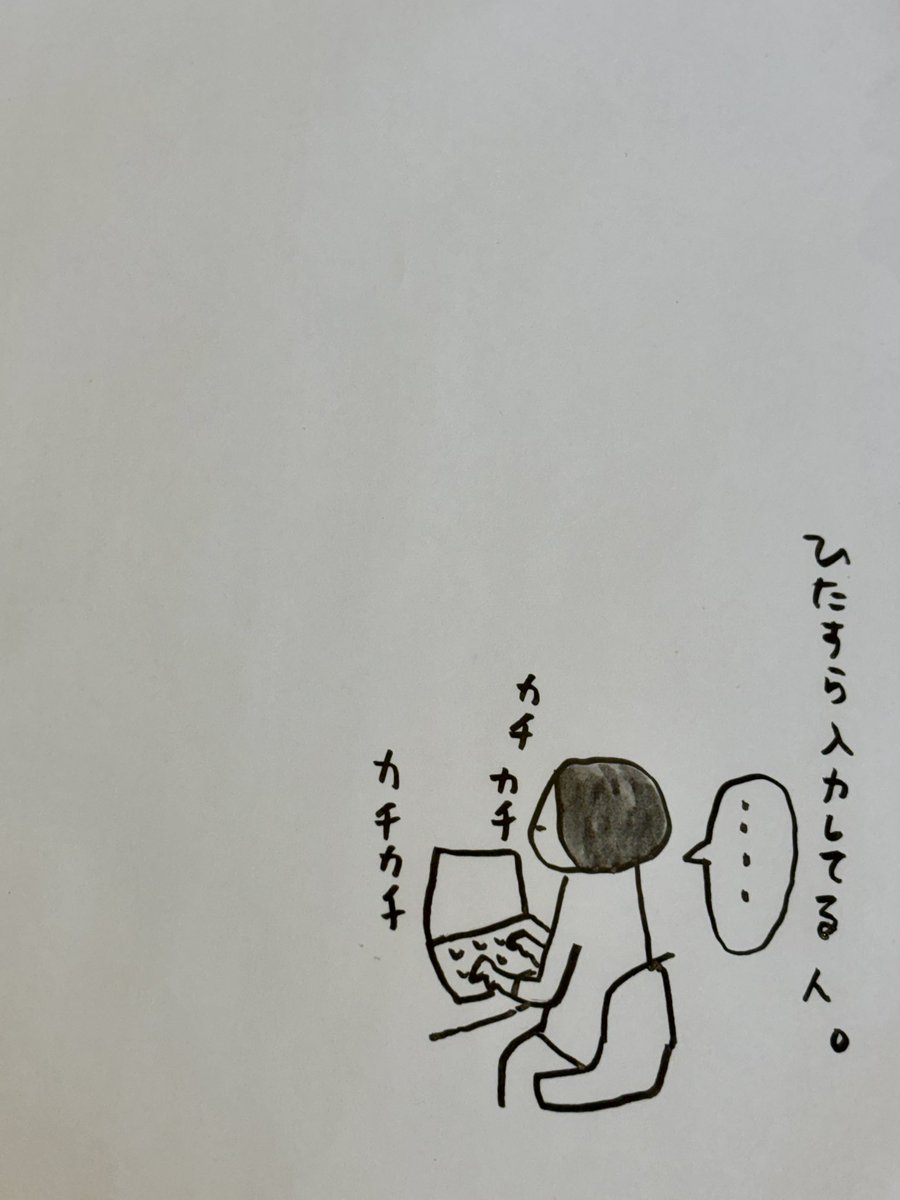 ひたすら入力してる人。
・・・・
カチ
カチ
カチカチ